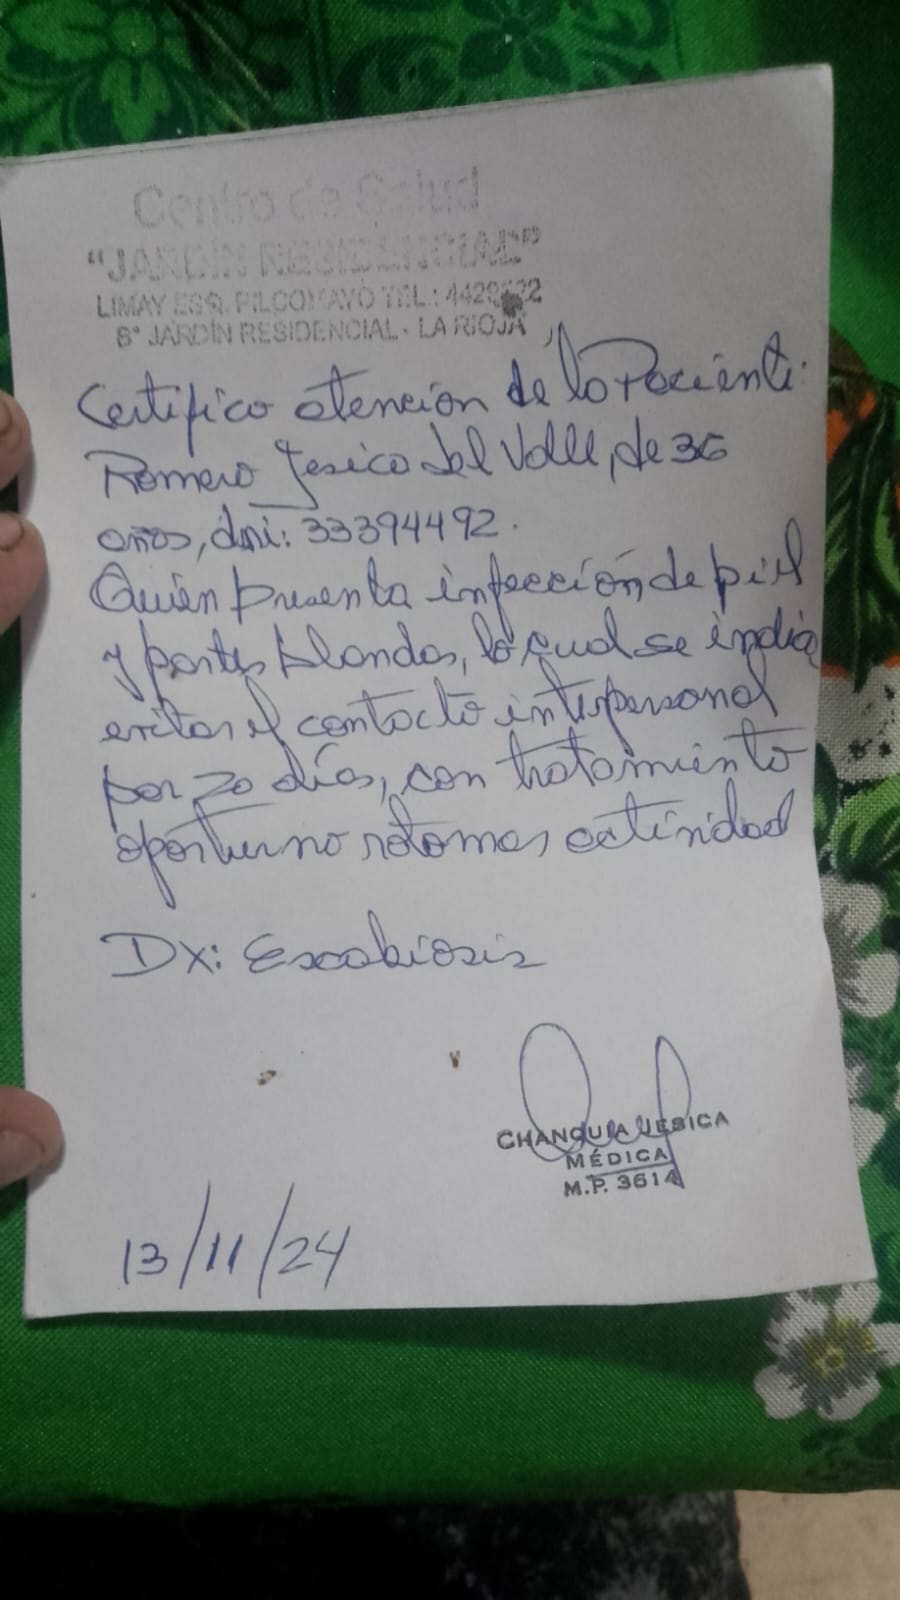 Centro de Salud
"JARDÍN RESIDENCIAL"
LIMAY ESQ. PILCOMAYO TEL.: 442
B° JARDÍN RESIDENCIAL - LA RIOJA
Certifico atención de la Paciente:
Romero Jesica del Valle, de 36
años, dni: 33394492.
Quien presenta infección de piel
y partes blandas, lo cual se indica
evitar el contacto interpersonal
por 20 días, con tratamiento
oportuno retomar actividad
Dx: Escabiosis
CHANQUIA JESICA
MÉDICA
M.P. 3614
13/11/24